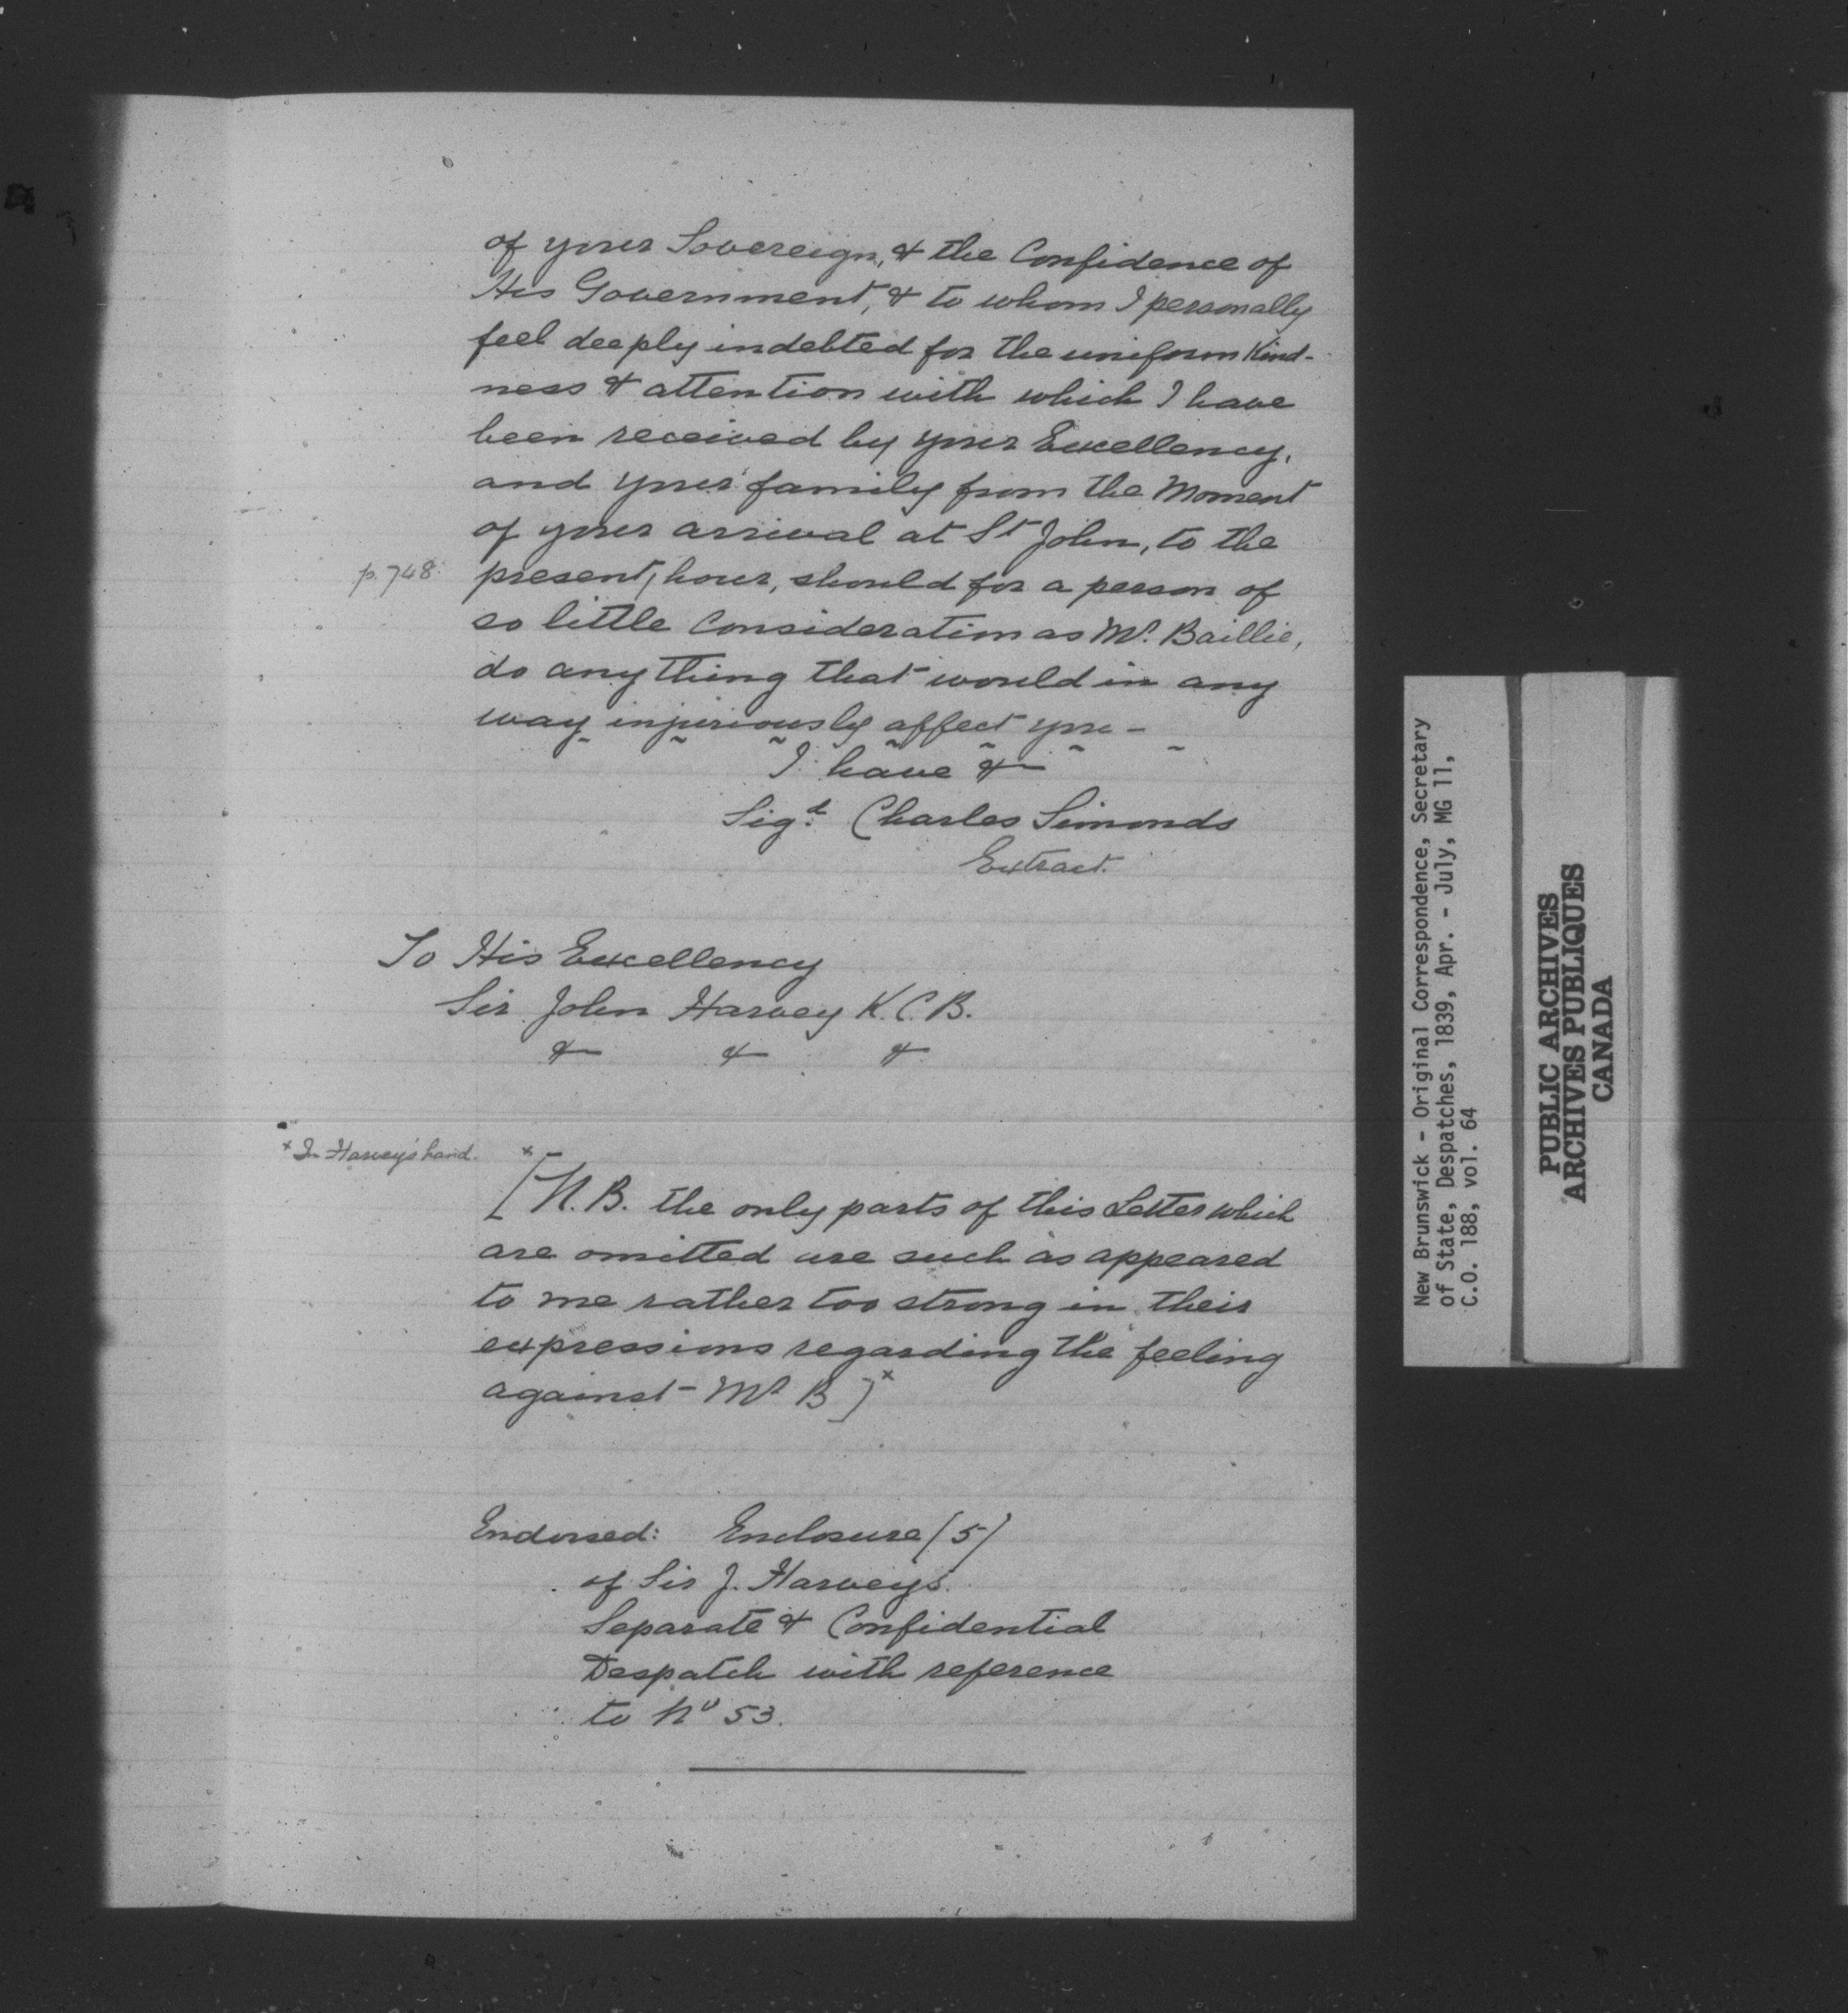 of your Sovereign, & the Confidence of
His Government, & to whom I personally
feel deeply indebted for the uniform Kind-
ness & attention with which I have
been received by your Excellency,
and your family from the Moment
of your arrival at St John, to the
p. 748. present / hour, should for a person of
so little Consideration as Mr. Baillie,
do any thing that would in any
way injuriously affect you -
I have &
Sigd. Charles Simonds
Extract.
To His Excellency
Sir John Harvey K.C.B.
& & &
x In Harvey's hand.
x [N.B. the only parts of this Letter which
are omitted are such as appeared
to me rather too strong in their
expressions regarding the feeling
against - Mr B]x
Endorsed: Enclosure (5)
of Sir J. Harvey's
Separate & Confidential
Despatch with reference
to No 53.
New Brunswick - Original Correspondence, Secretary
of State, Despatches, 1839, Apr. - July, MG 11,
C.O. 188, vol. 64
PUBLIC ARCHIVES
ARCHIVES PUBLIQUES
CANADA